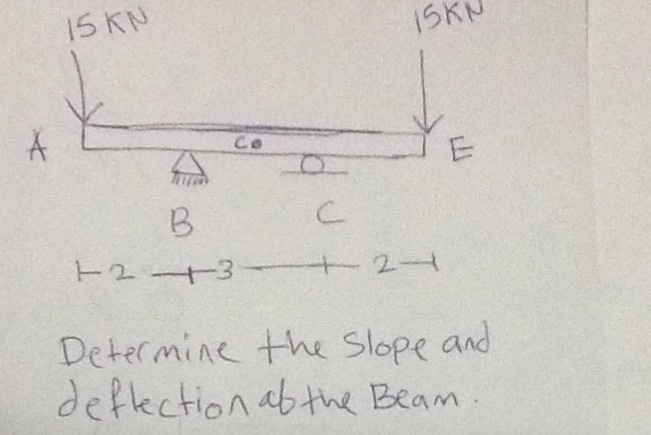 15KN 15KN
A Co E
B C
2 3 2
Determine the slope and
deflection ab the Beam.